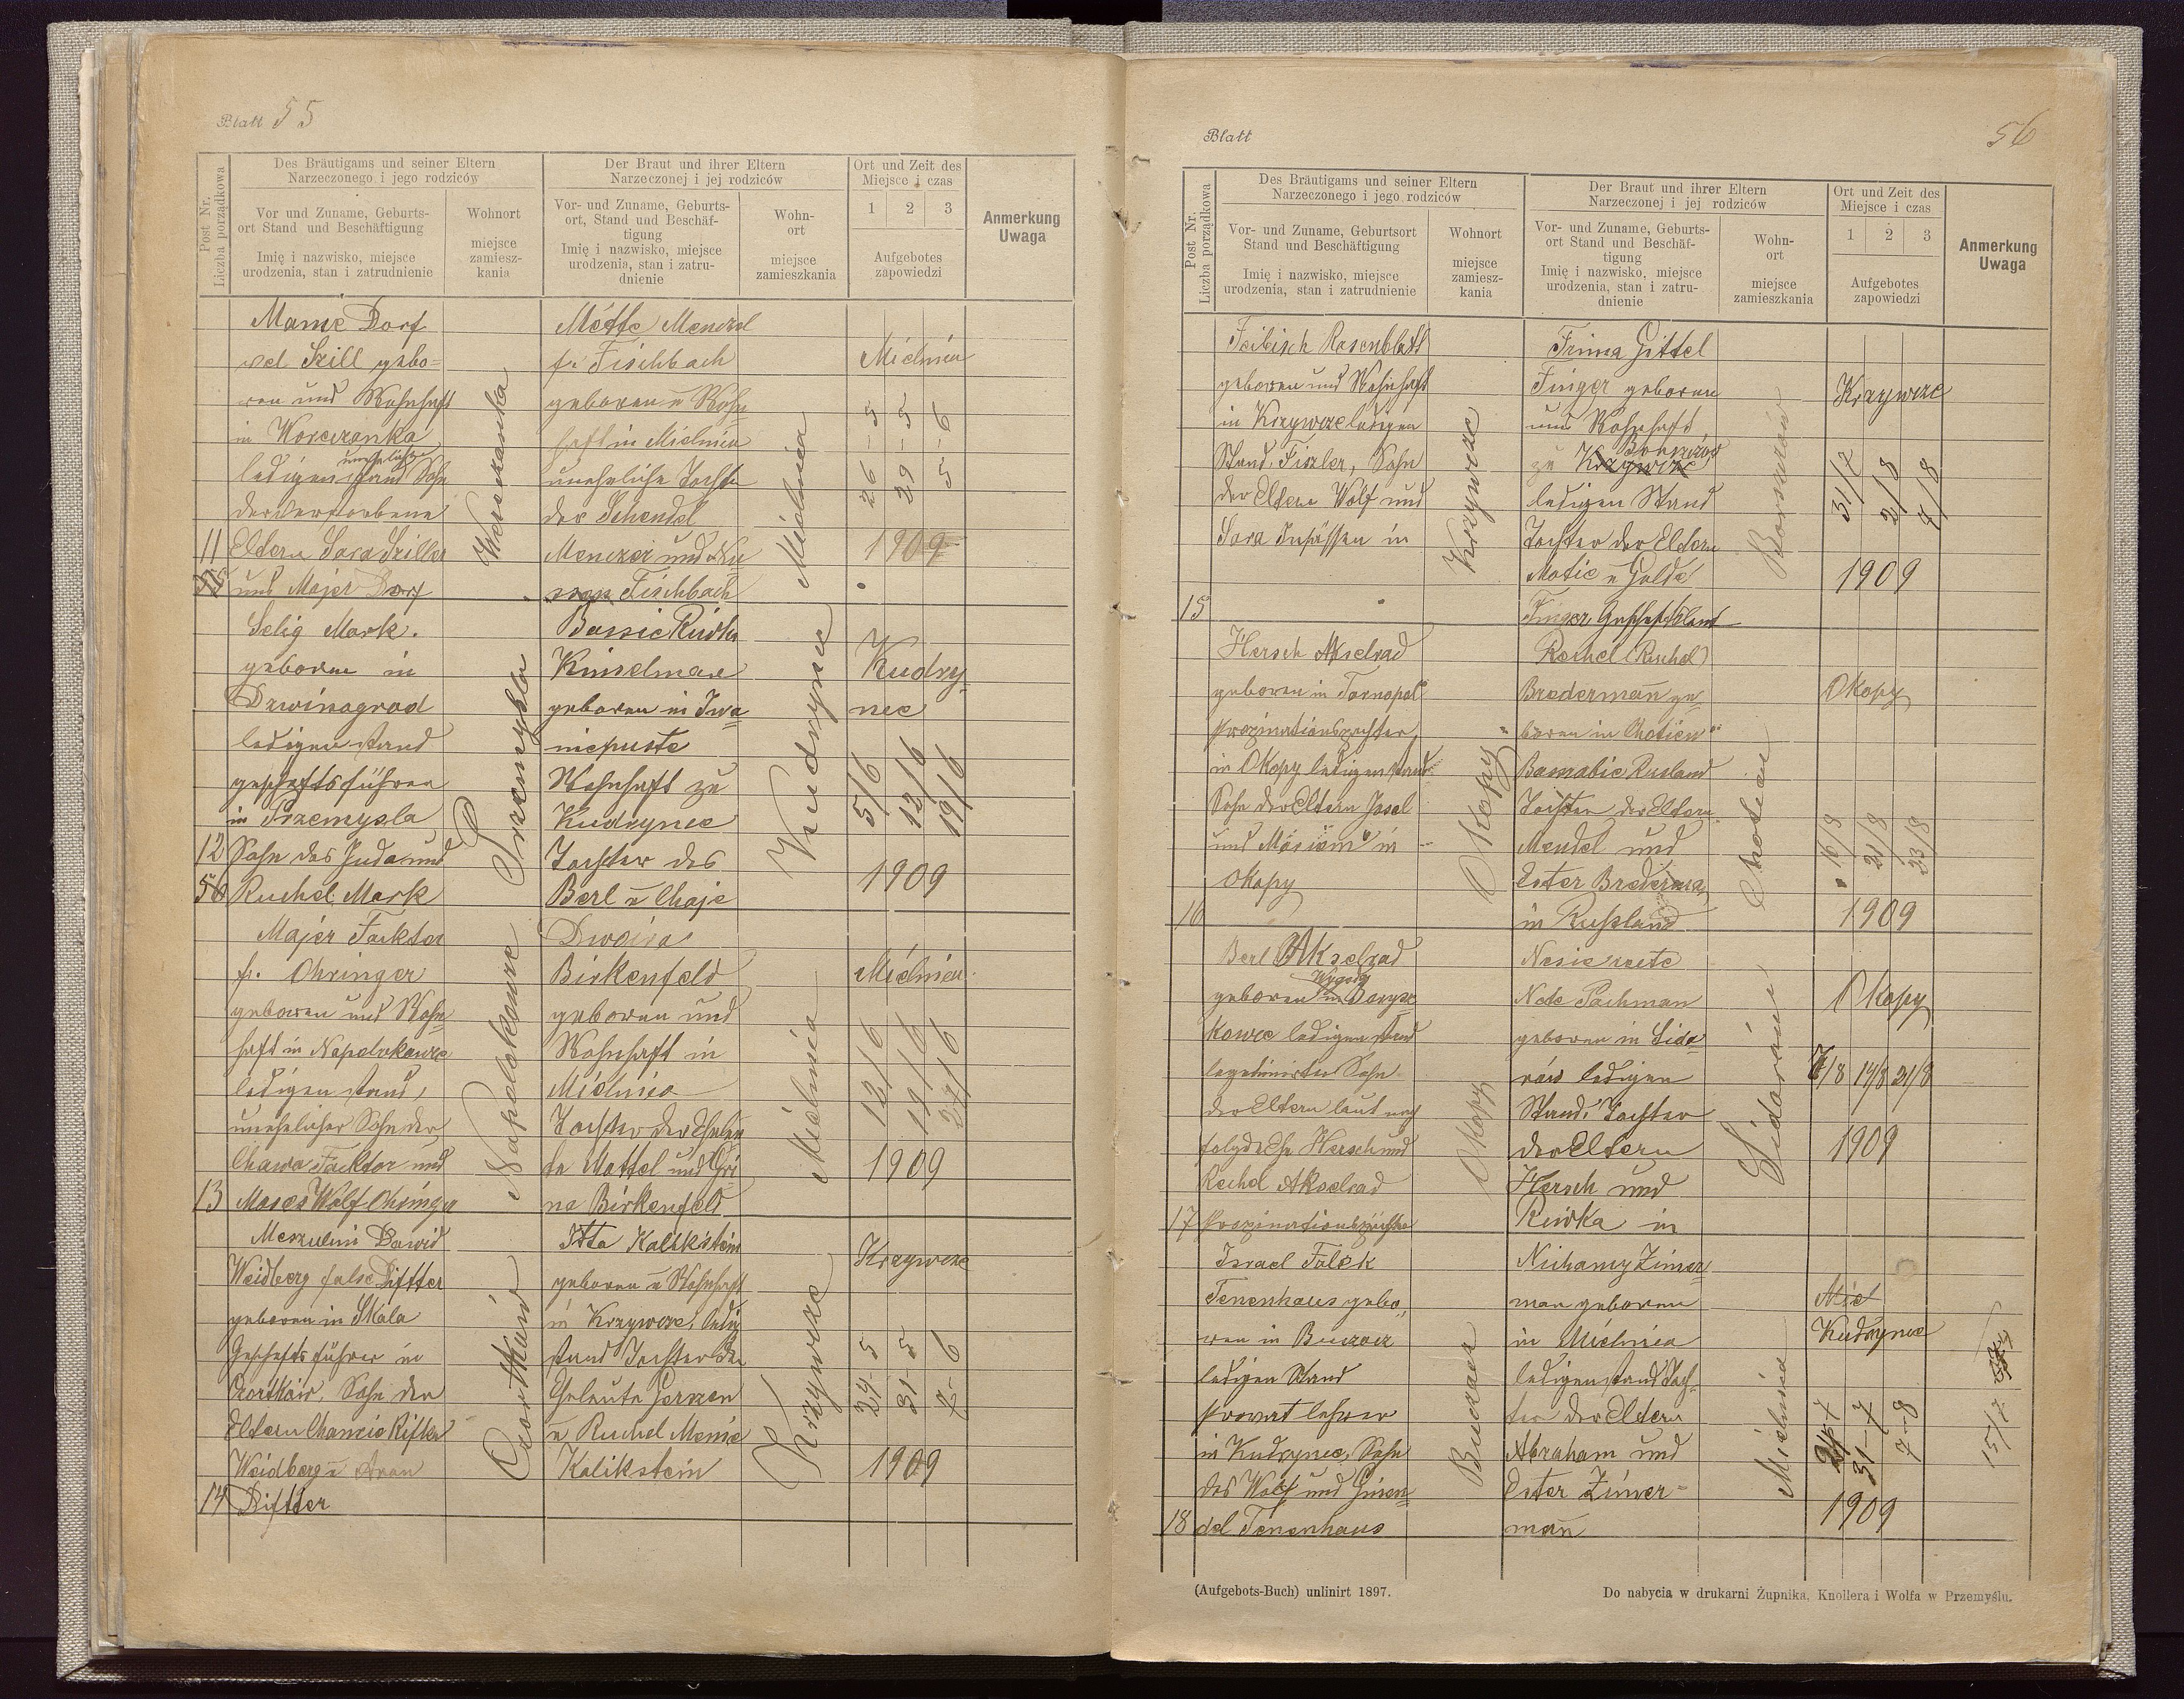 Blatt 55
Post Nr.
Liczba porządkowa
Des Bräutigams und seiner Eltern
Narzeczonego i jego rodziców
Der Braut und ihrer Eltern
Narzeczonej i jej rodziców
Ort und Zeit des
Miejsce i czas
Vor und Zuname, Geburts-
ort Stand und Beschäftigung
Imię i nazwisko, miejsce
urodzenia, stan i zatrudnienie
Wohnort
miejsce
zamiesz-
kania
Vor- und Zuname, Geburts-
ort, Stand und Beschäf-
tigung
Imię i nazwisko, miejsce
urodzenia, stan i zatru-
dnienie
Wohn-
ort
miejsce
zamieszkania
1 2 3
Aufgebotes
zapowiedzi
Anmerkung
Uwaga
11
Dorf
vel Szill gebo=
ren und Wohnhaft
in Worczanka
ledigen stand Sohn
der verstorbene
Eltern Sara Sziller
und Majer Dorf
f. Fischbach
geboren u Wohn
haft in Mielnica
uneheliche Tochter
der Schendel
Menczer und
Fischbach
Mielnica
Mielnica
26-5
29-5
5-6
1909
12
Selig Mark.
geboren in
Dzwinograd
ledigen stand
geschäftsführer
in Przemysla
Sohn des Juda und
Ruchel Mark
Przemysla
Bassie Riwka
geboren in Iwa
niepuste
Wohnhaft zu
Kudrynce
Tochter des
Berl u Chaje
Kudrynce
Kudry
nce
5/6
12/6
19/6
1909
13
Majer Facktor
f. Ohringer
geboren und Wohn
haft in
ledigen stand,
unehelicher Sohn der
Chawa Facktor und
Moses Wolf Ohringer
Dwoira
Birkenfeld
geboren und
Wohnhaft in
Mielnica
Tochter der Eheleu
te Mottel und Gri
na Birkenfeld
Mielnica
Mielnica
12/6
19/6
1909
14
Meszulim Dawid
Weidberg false Diffter
geboren in Skala
Geschäftsführer in
Czortków. Sohn der
Eltern Chancie Rifke
Weidberg u Aron
Diffter
Czortków
Itta Kalikstein
geboren u Wohnhaft
in Krzywcze, ledig
stand Tochter der
Eheleute Gerszon
u Ruchel Menie
Kalikstein
Krzywcze
Krzywcze
24-5
31-5
7-6
1909
Blatt
56
Post Nr.
Liczba porządkowa
Des Bräutigams und seiner Eltern
Narzeczonego i jego rodziców
Der Braut und ihrer Eltern
Narzeczonej i jej rodziców
Ort und Zeit des
Miejsce i czas
Vor- und Zuname, Geburtsort
Stand und Beschäftigung
Imię i nazwisko, miejsce
urodzenia, stan i zatrudnienie
Wohnort
miejsce
zamiesz-
kania
Vor- und Zuname, Geburts-
ort Stand und Beschäf-
tigung
Imię i nazwisko, miejsce
urodzenia, stan i zatru-
dnienie
Wohn-
ort
miejsce
zamieszkania
1 2 3
Aufgebotes
zapowiedzi
Anmerkung
Uwaga
15
Feibisch Rosenblatt
geboren und Wohnhaft
in Krzywcze ledigen
Stand, Fiszler, Sohn
der Eltern Wolf und
Sara Insässen in
Krzywcze
Frima Gittel
Finger geboren
und Wohnhaft
Borszczów
zu Krzywcze
ledigen Stand
Tochter der Eltern
Motie u Golde
Finger
Borszczów
Krzywcze
31/7
2/8
7/8
1909
16
Hersch Akselrad
geboren in Tarnopol
Propinationspächter,
in Okopy ledigen stand
Sohn der Eltern Josel
und in
Okopy
Okopy
Rachel (Ruchel)
Bredermañ ge
boren in Chotien
Rusland
Tochter der Eltern
Mendel und
Ester
in Rußland
Chotien
Okopy
16/8
21/8
23/8
1909
17
Berl Akselrad
geboren in
ledigen stand
legitimirter Sohn
der Eltern laut nach
Hersch und
Rachel Akselrad
Propinationspächter
Okopy
Note Pachman
geboren in Sido
rów ledigen
Stand. Tochter
der Eltern
Hersch und
Riwka in
Sidorów
Okopy
7/8 14/8 21/8
1909
18
Israel Falek
Tenenhaus gebo
ren in Buczacz
ledigen Stand
privat lehrer
in Kudrynce, Sohn
des Wolf und
del Tenenhaus
Buczacz
Zimer
man geboren
in Mielnica
ledigen stand Toch
ter der Eltern
Abraham und
Ester Zimer-
mañ
Mielnica
Miel
Kudrynce
24-7
31-7
7-8
1909
15/7
(Aufgebots-Buch) unlinirt 1897.
Do nabycia w drukarni Żupnika, Knollera i Wolfa w Przemyślu.